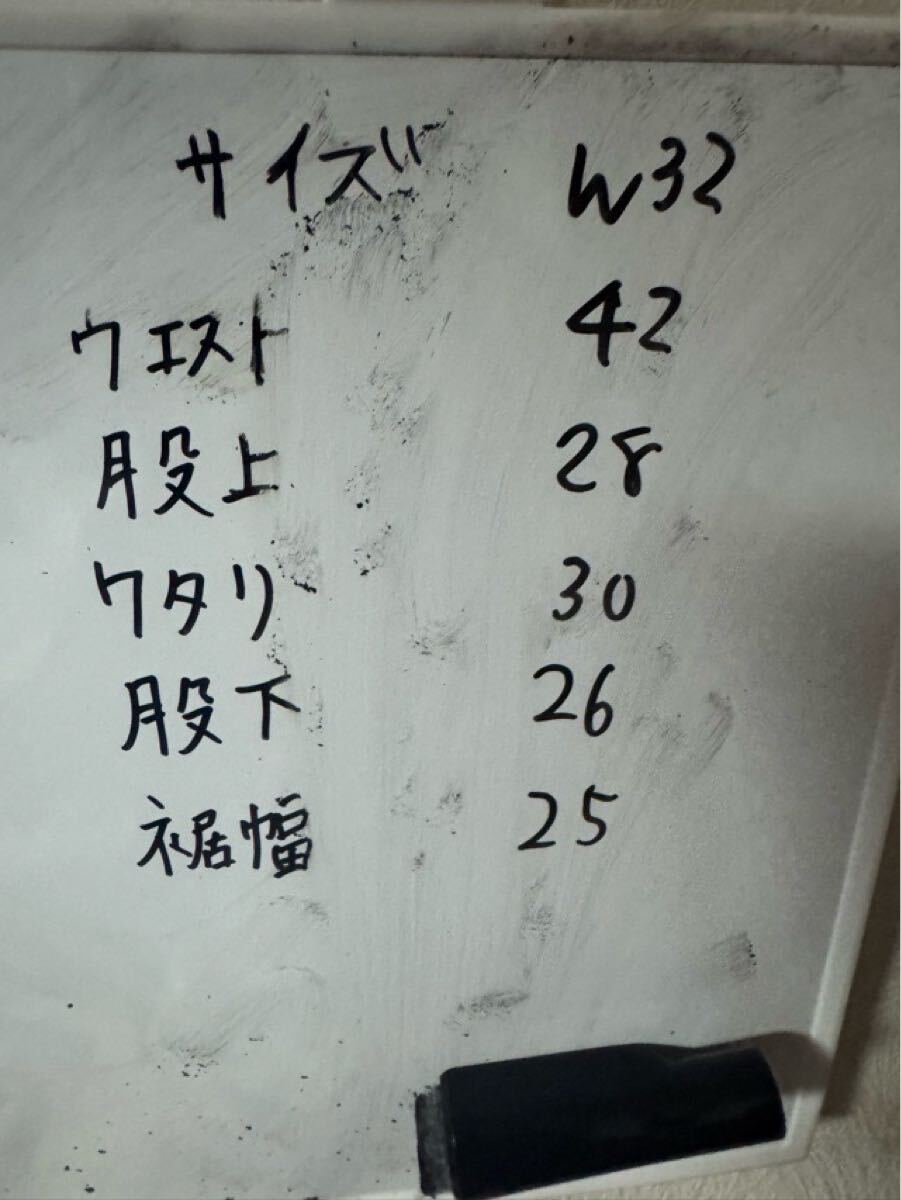 サイズ W32
ウエスト 42
股上 28
ワタリ 30
股下 26
裾幅 25